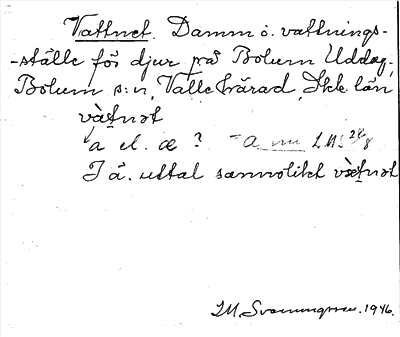 Vattnet. Damm o. vattnings-
-ställe för djur på Bolum Uddag.,
Bolum s:n, Valle härad, Skb. län
vàtnət
a el. æ ? = a nu LMS 28/8
I ä. uttal sannolikt vætnət
LM. Svenungsson. 1946.